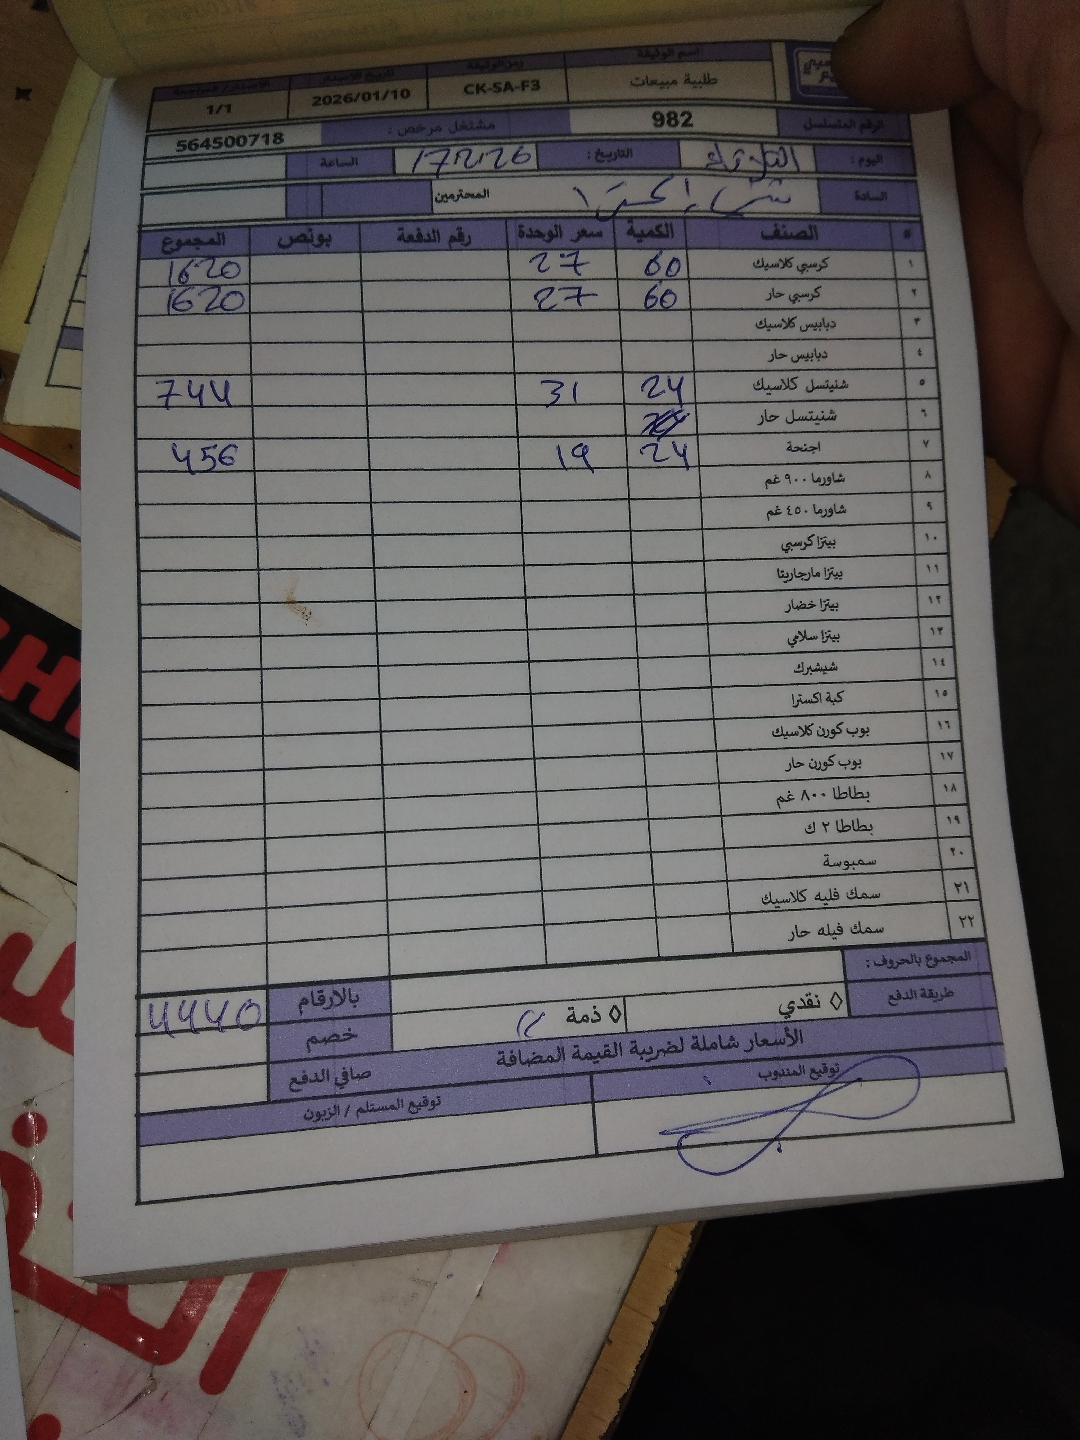 اسم الوثيقة رمز الوثيقة تاريخ الاصدار الاصدار / المراجعة
طلبية مبيعات CK-SA-F3 2026/01/10 1/1
الرقم المتسلسل 982 مشتغل مرخص : 564500718
اليوم : الثلاثاء التاريخ : 17/2/26 الساعة
السادة المحترمين
# الصنف الكمية سعر الوحدة رقم الدفعة بونص المجموع
١ كرسبي كلاسيك 60 27 1620
٢ كرسبي حار 60 27 1620
٣ دبابيس كلاسيك
٤ دبابيس حار
٥ شنيتسل كلاسيك 24 31 744
٦ شنيتسل حار
٧ اجنحة 24 19 456
٨ شاورما ٩٠٠ غم
٩ شاورما ٤٥٠ غم
١٠ بيتزا كرسبي
١١ بيتزا مارجاريتا
١٢ بيتزا خضار
١٣ بيتزا سلامي
١٤ شيشبرك
١٥ كبة اكسترا
١٦ بوب كورن كلاسيك
١٧ بوب كورن حار
١٨ بطاطا ٨٠٠ غم
١٩ بطاطا ٢ ك
٢٠ سمبوسة
٢١ سمك فليه كلاسيك
٢٢ سمك فيله حار
المجموع بالحروف :
بالارقام 4440
طريقة الدفع ◊ نقدي ◊ ذمة //
خصم
الأسعار شاملة لضريبة القيمة المضافة
صافي الدفع
توقيع المندوب توقيع المستلم / الزبون